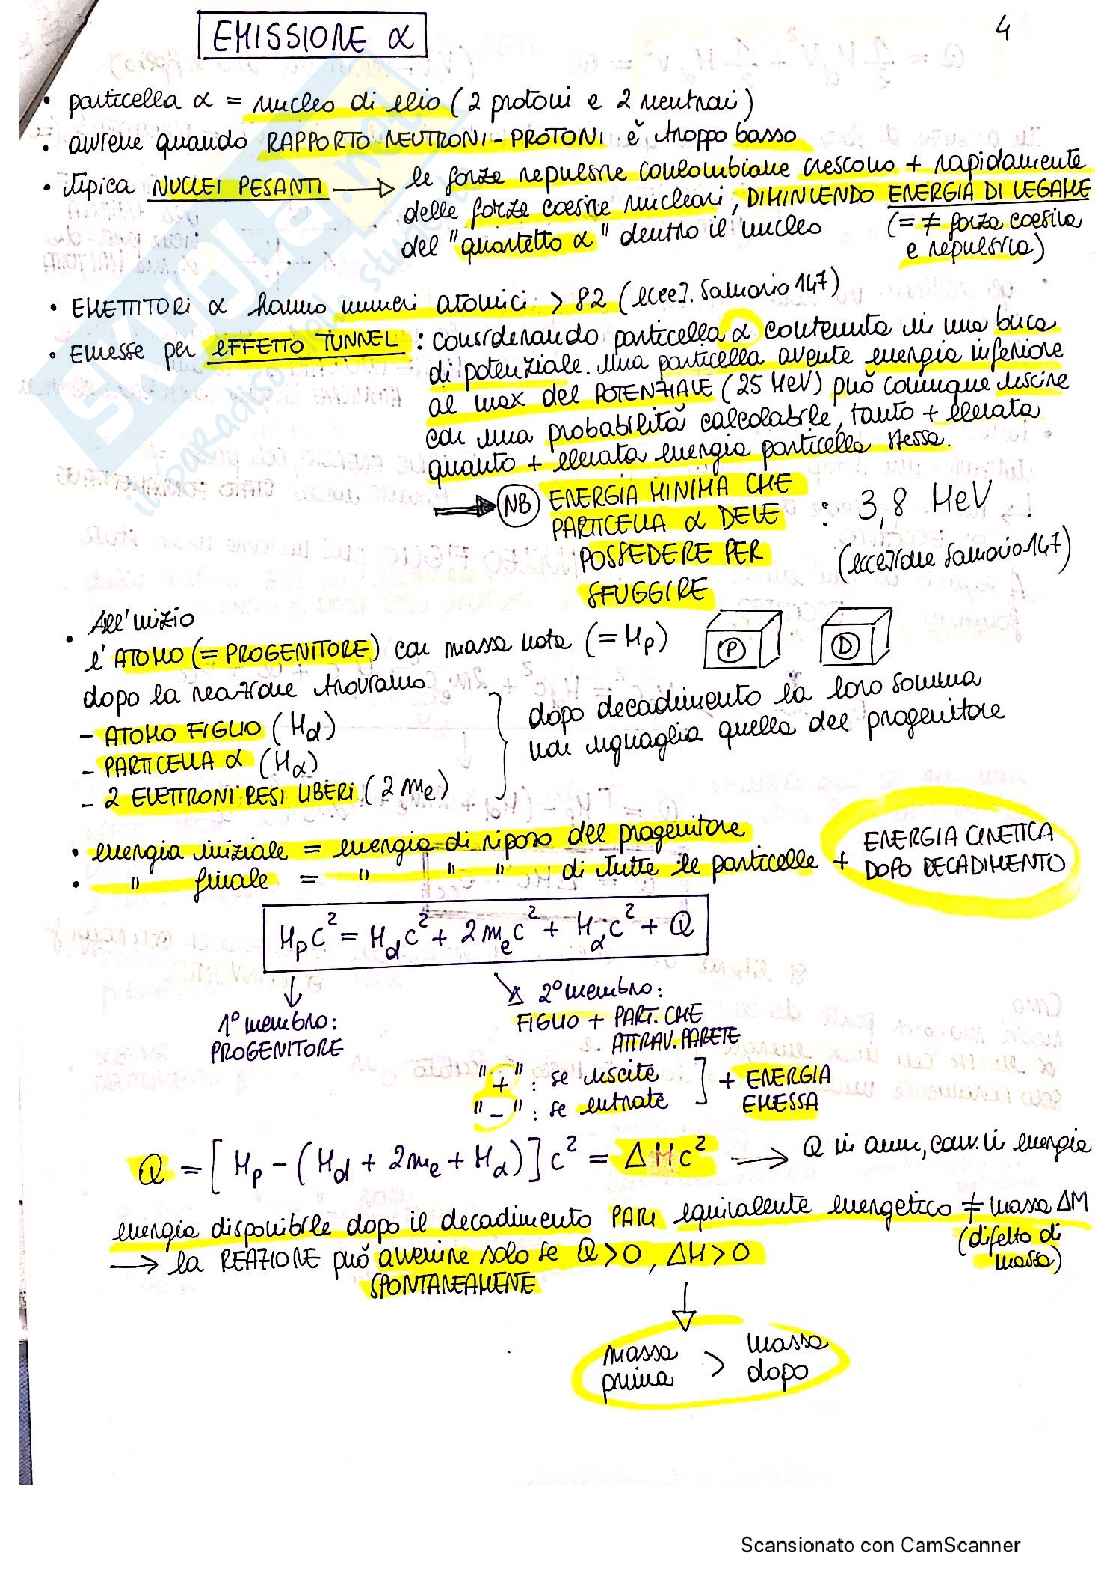 EMISSIONE α
4
• particella α = nucleo di elio (2 protoni e 2 neutroni)
• avviene quando RAPPORTO NEUTRONI-PROTONI è troppo basso
• tipica NUCLEI PESANTI → le forze repulsive coulombiane crescono + rapidamente
delle forze coesive nucleari, DIMINUENDO ENERGIA DI LEGAME
del "quartetto α" dentro il nucleo (= ≠ forza coesiva
e repulsiva)
• EMETTITORI α hanno numeri atomici > 82 (eccez. Samario 147)
• Emesse per EFFETTO TUNNEL : considerando particella α contenuta in una buca
di potenziale. Una particella avente energia inferiore
al max del POTENZIALE (25 MeV) può comunque uscire
con una probabilità calcolabile, tanto + elevata
quanto + elevata energia particella stessa.
→ NB ENERGIA MINIMA CHE
PARTICELLA α DEVE : 3,8 MeV
POSSEDERE PER (eccezione Samario 147)
SFUGGIRE
• All'inizio
l'ATOMO (= PROGENITORE) con massa nota (= Mp) P D
dopo la reazione troviamo
- ATOMO FIGLIO (Md)
- PARTICELLA α (Mα)
- 2 ELETTRONI RESI LIBERI (2 me)
dopo decadimento la loro somma
non uguaglia quella del progenitore
• energia iniziale = energia di riposo del progenitore
• " finale = " " " di tutte le particelle + ENERGIA CINETICA
DOPO DECADIMENTO
Mpc² = Mdc² + 2mec² + Mαc² + Q
1° membro:
PROGENITORE
2° membro:
FIGLIO + PART. CHE
ATTRAV. PARETE
"+" : se uscite
"-" : se entrate
+ ENERGIA
EMESSA
Q = [Mp - (Md + 2me + Mα)] c² = ΔMc² → Q in amu, conv. in energia
energia disponibile dopo il decadimento PARI equivalente energetico ≠ massa ΔM
(difetto di
massa)
→ la REAZIONE può avvenire solo se Q > 0, ΔM > 0
SPONTANEAMENTE
massa
prima > massa
dopo
Scansionato con CamScanner